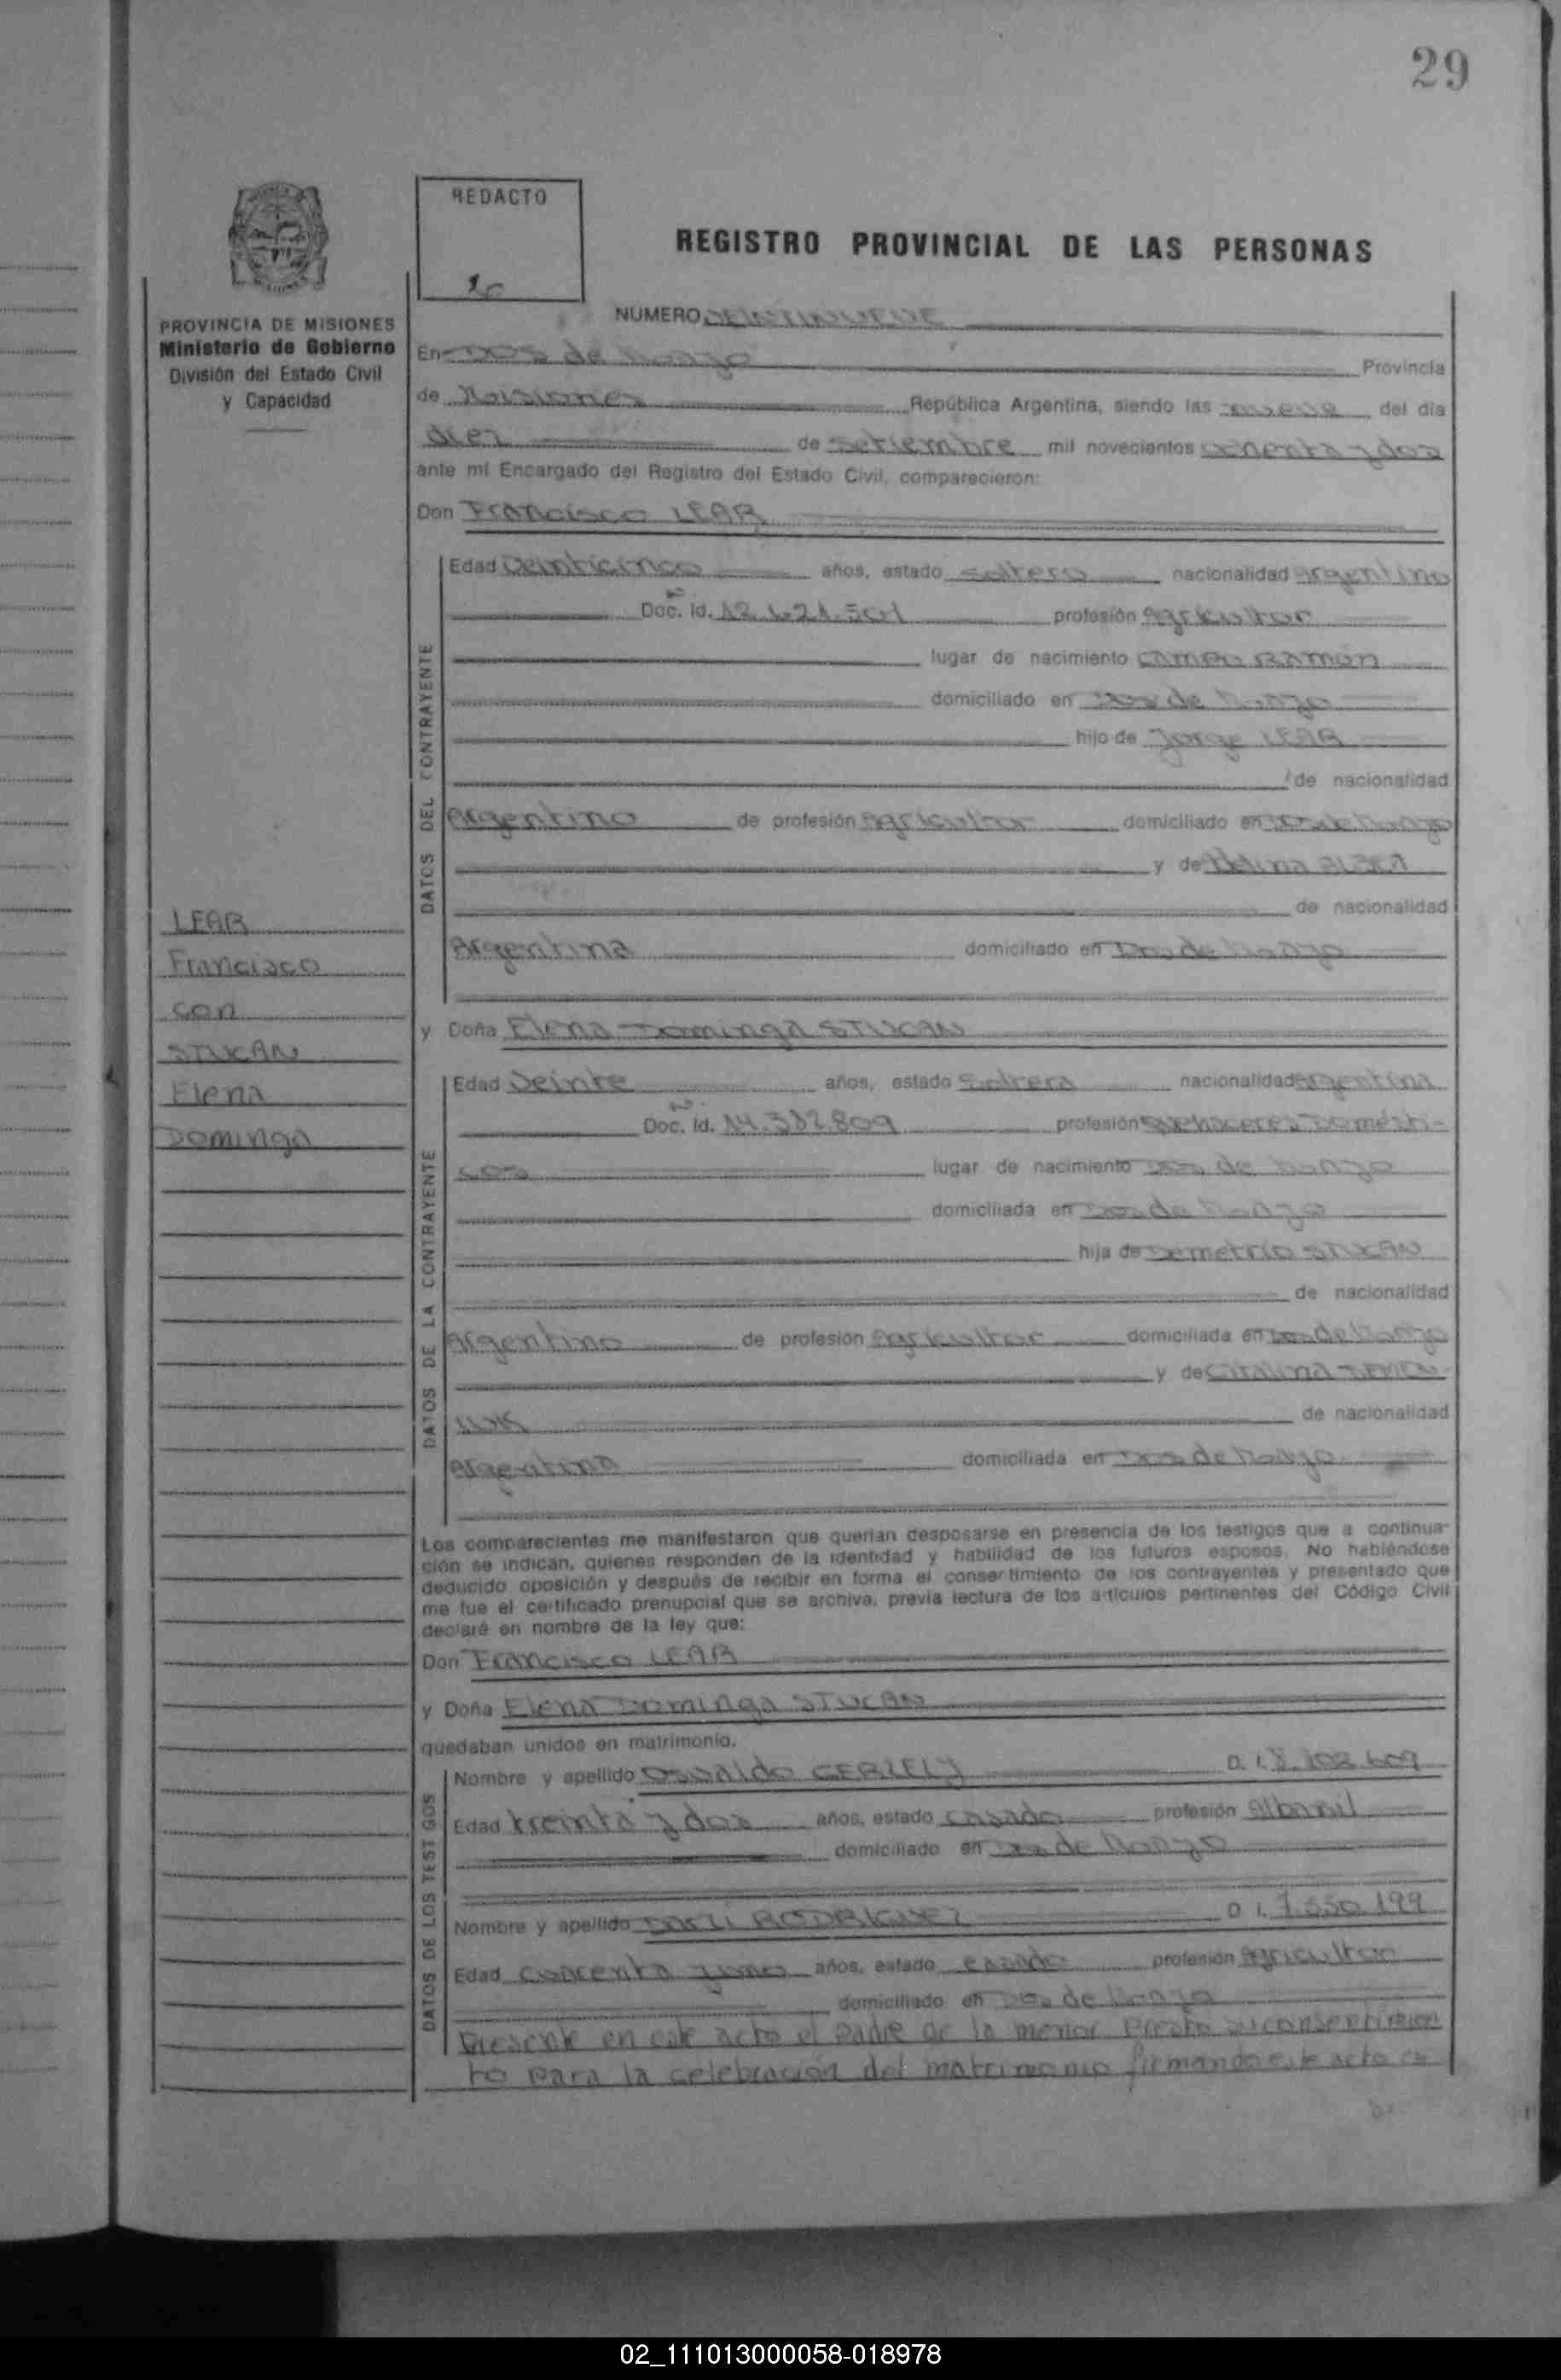 29
REDACTO
REGISTRO PROVINCIAL DE LAS PERSONAS
PROVINCIA DE MISIONES
Ministerio de Gobierno
División del Estado Civil
y Capacidad
NUMERO VEINTINUEVE
En Dos de Mayo Provincia
de Misiones República Argentina, siendo las nueve del día
diez de Setiembre mil novecientos ochenta y dos
ante mí Encargado del Registro del Estado Civil, comparecieron:
Don Francisco LEAR
LEAR
Francisco
con
STUCAN
Elena
Dominga
DATOS DEL CONTRAYENTE
Edad Veinticinco años, estado soltero nacionalidad Argentino
Doc. Id. Nº 12.621.501 profesión Agricultor
lugar de nacimiento CAMPO RAMON
domiciliado en Dos de Mayo
hijo de Jorge LEAR
de nacionalidad
Argentino de profesión Agricultor domiciliado en Dos de Mayo
y de
de nacionalidad
Argentina domiciliado en Dos de Mayo
y Doña Elena Dominga STUCAN
DATOS DE LA CONTRAYENTE
Edad Veinte años, estado Soltera nacionalidad Argentina
Doc. Id. Nº 14.382.809 profesión Quehaceres Domésti-
cos lugar de nacimiento Dos de Mayo
domiciliada en Dos de Mayo
hija de Demetrio STUCAN
de nacionalidad
Argentino de profesión Agricultor domiciliada en Dos de Mayo
y de Catalina
de nacionalidad
Argentina domiciliada en Dos de Mayo
Los comparecientes me manifestaron que querían desposarse en presencia de los testigos que a continua-
ción se indican, quienes responden de la identidad y habilidad de los futuros esposos. No habiéndose
deducido oposición y después de recibir en forma el consertimiento de los contrayentes y presentado que
me fue el certificado prenupcial que se archiva, previa lectura de los artículos pertinentes del Código Civil
declaré en nombre de la ley que:
Don Francisco LEAR
y Doña Elena Dominga STUCAN
quedaban unidos en matrimonio.
DATOS DE LOS TESTIGOS
Nombre y apellido Osvaldo D. I. 8.102.609
Edad treinta y dos años, estado casado profesión Albañil
domiciliado en Dos de Mayo
Nombre y apellido RODRIGUEZ D. I. 7.550.199
Edad cuarenta y uno años, estado casado profesión Agricultor
domiciliado en Dos de Mayo
Presente en este acto el padre de la menor presta su consentimien
to para la celebración del matrimonio firmando este acto
02_111013000058-018978